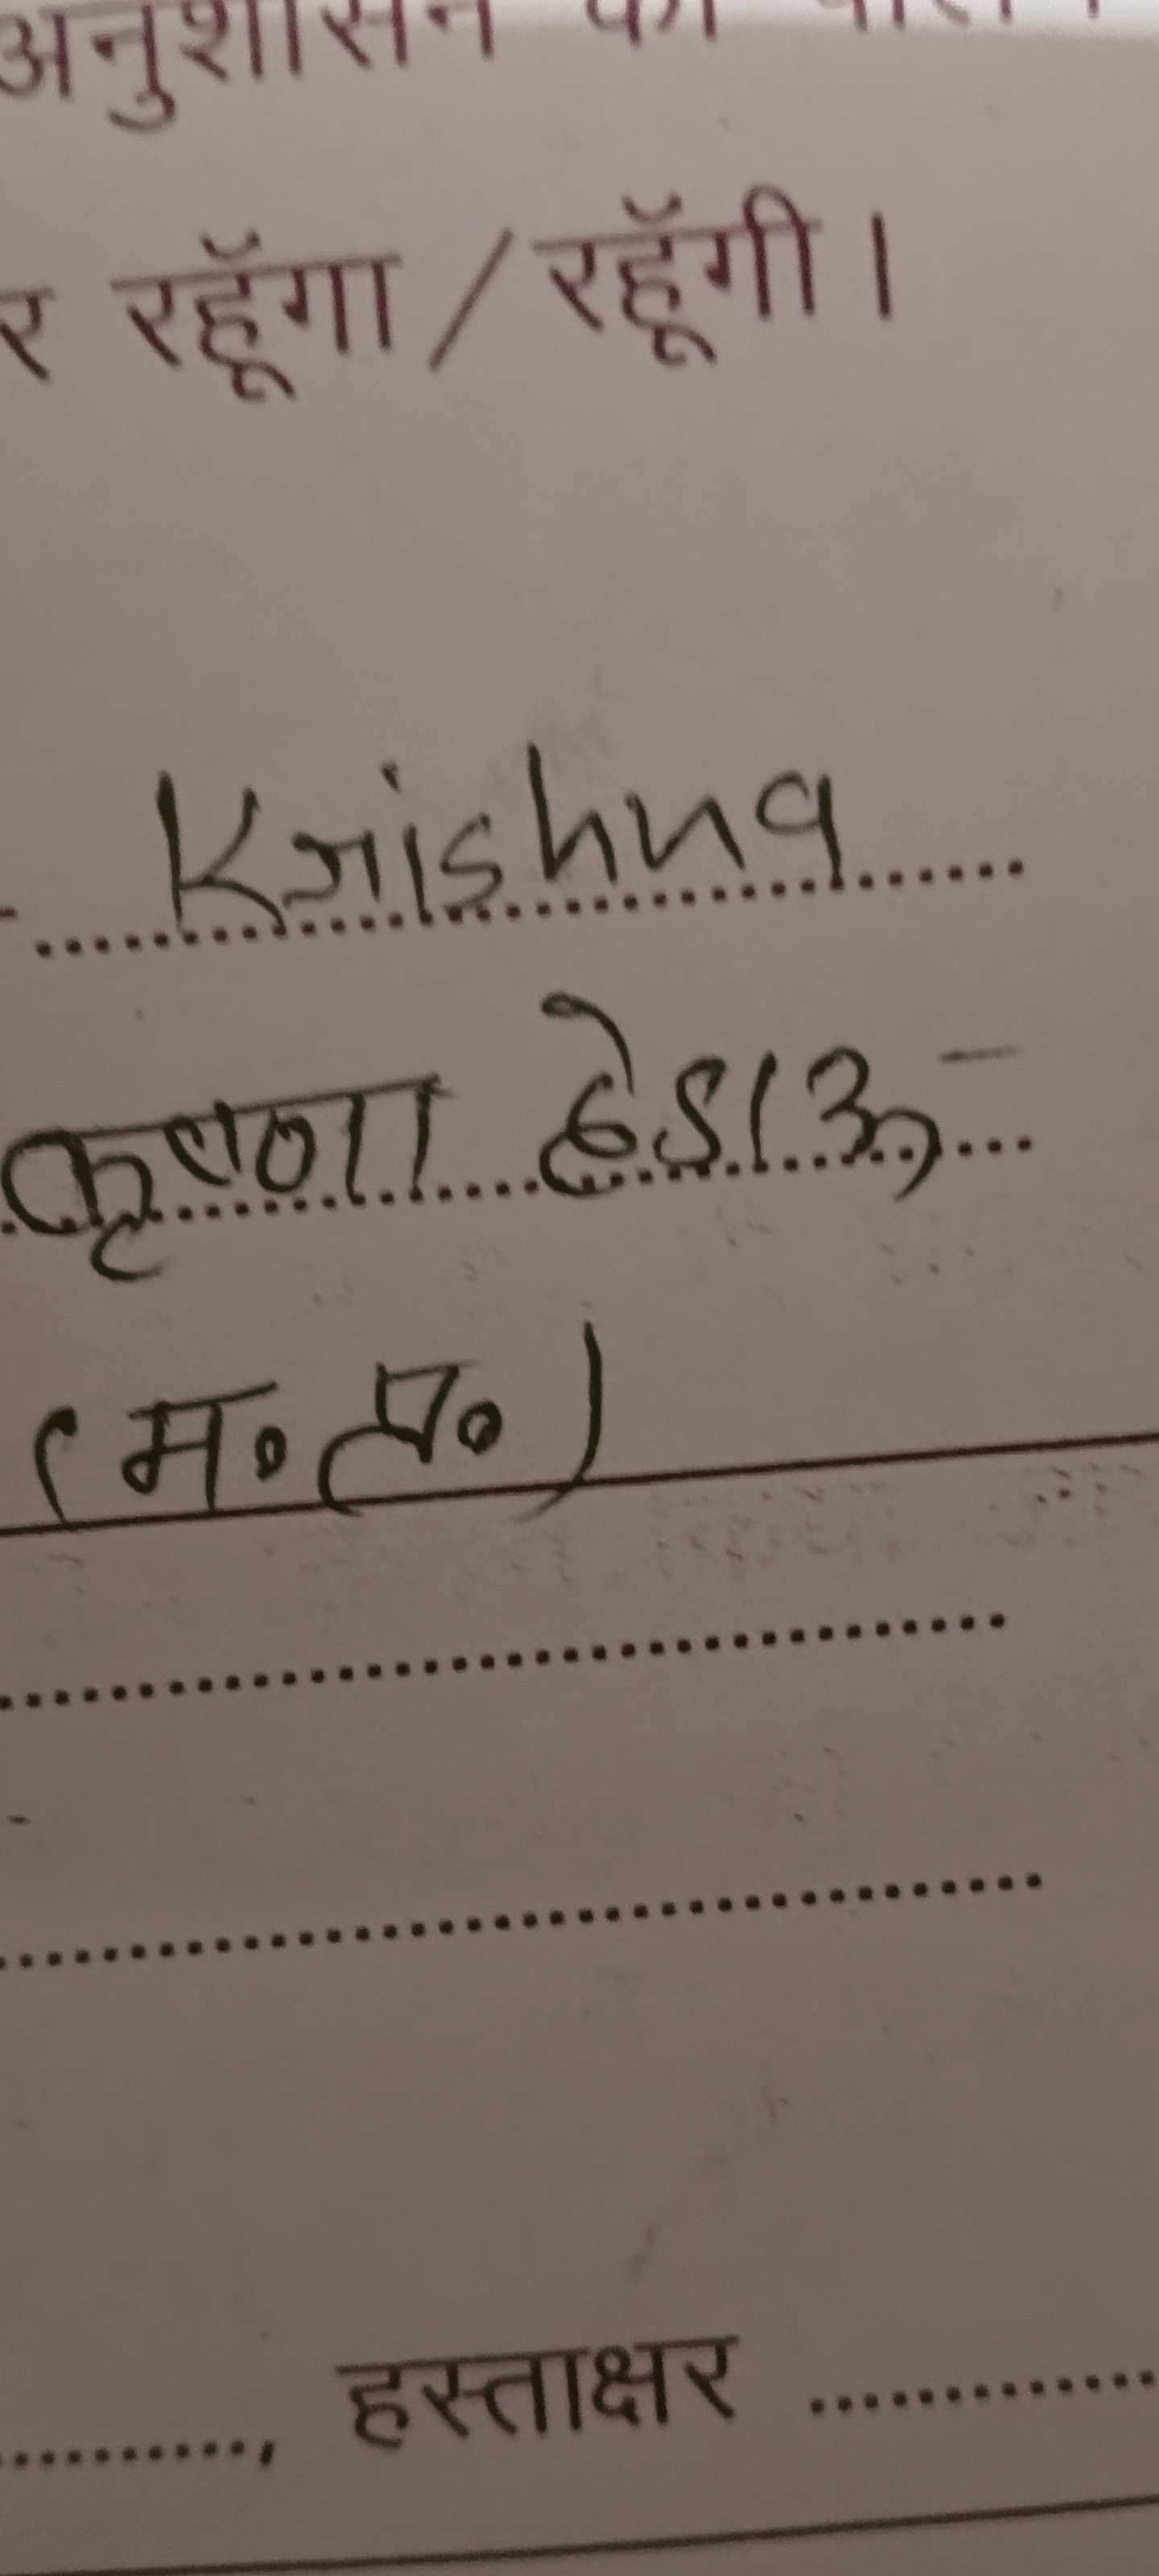 अनुशासन का
र रहूँगा / रहूँगी।
Krishna
कृष्णा हेडाऊ
(म.प्र.)
हस्ताक्षर